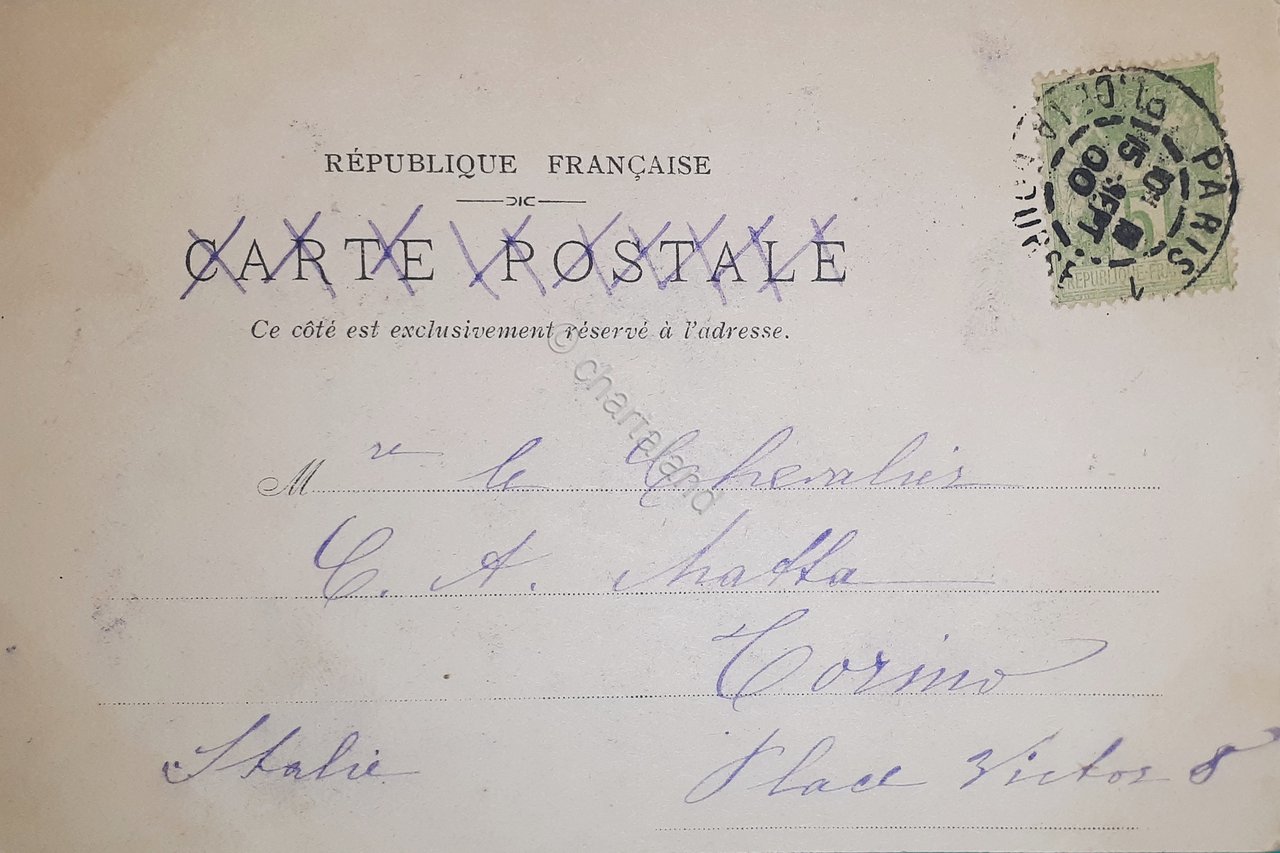 RÉPUBLIQUE FRANÇAISE
CARTE POSTALE
Ce côté est exclusivement réservé à l'adresse.
PARIS
PL. DE LA
15
SEPT
00
5
RÉPUBLIQUE FRANÇ
© chartaland
Mre le Chevalier
C. A. Matta
Torino
Italie
Place Victor 8